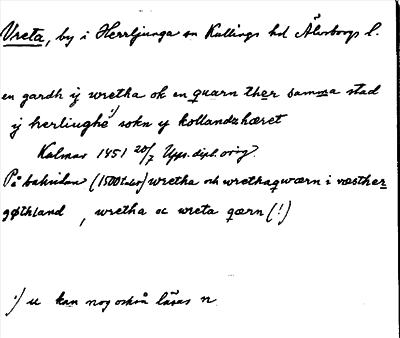 Vreta, by i Herrljunga sn Kullings hd Älvsborgs l.
en gardh ij wretha ok en quarn ther samma stad
ij herliughe ¹⁾ sokn y kollandzhæret
Kalmar 1451 20/7 Upps. dipl. orig.
På baksidan (1500-tal) wretha och wrethaqwærn i væsther
gøthland, wretha oc wreta qærn (!)
¹⁾ u kan nog också läsas n